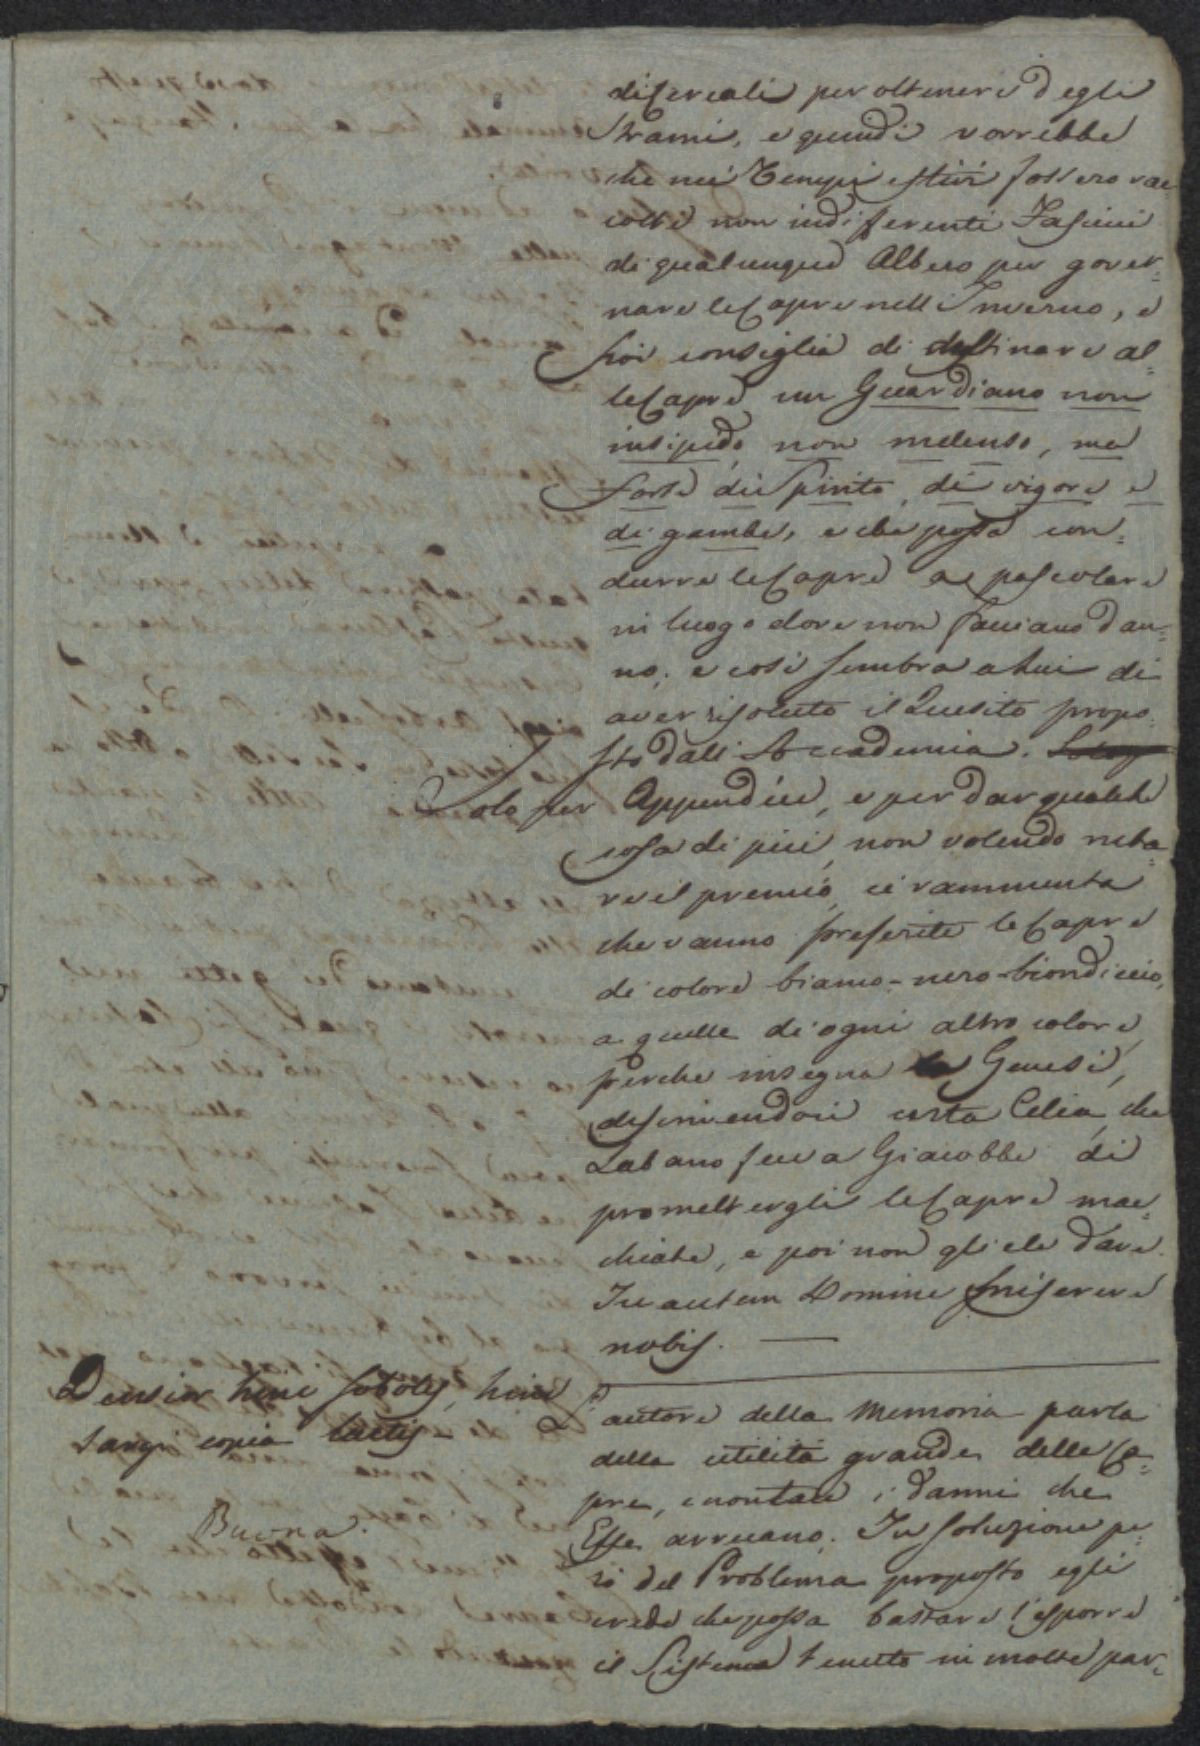 di cereali per ottenere degli
Strami, e quindi vorrebbe
che nei Tempi estivi fossero rac=
colte non indifferenti Fascine
di qualunque Albero per gover=
nare le Capre nell'Inverno, e
poi consiglia di destinare al=
le Capre un Guardiano non
insipido, non melenso, ma
forte di Spirito, di vigore e
di gambe, e che possa con=
durre le Capre a pascolare
in luogo dove non facciano dan=
no; e così sembra a lui di
aver risoluto il Quesito propo=
sto dall'Accademia.
Solo per Appendice, e per dar qualche
cosa di più, non volendo ruba=
re il premio, ci rammenta
che vanno preferite le Capre
di colore bianco-nero-biondiccio,
a quelle di ogni altro colore,
perche insegna la Genesi,
descrivendoci certa Celia, che
Labano fece a Giacobbe di
promettergli le Capre mac=
chiate, e poi non gliele dare.
Tu autem Domine miserere
nobis. —
Densior hinc soboles, hinc
largi copia lactis
Buona.
L'autore della Memoria parla
della utilità grande delle Ca=
pre, e i danni che
Esse arrecano. In soluzione pe=
rò del Problema proposto egli
crede che possa bastare l'esporre
il Sistema tenuto in molte par=